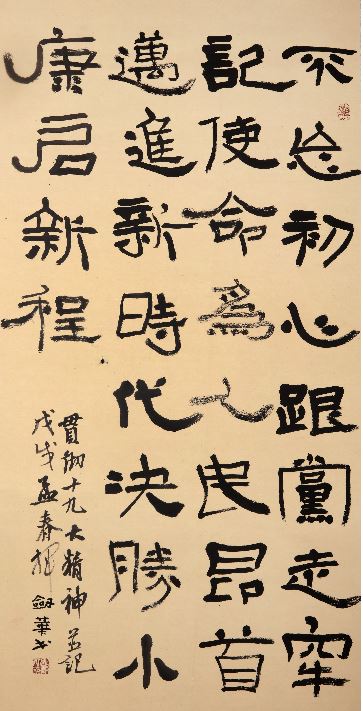 不忘初心跟黨走牢
記使命爲人民昂首
邁進新時代決勝小
康启新程
貫彻十九大精神並記
戊戌孟春揮